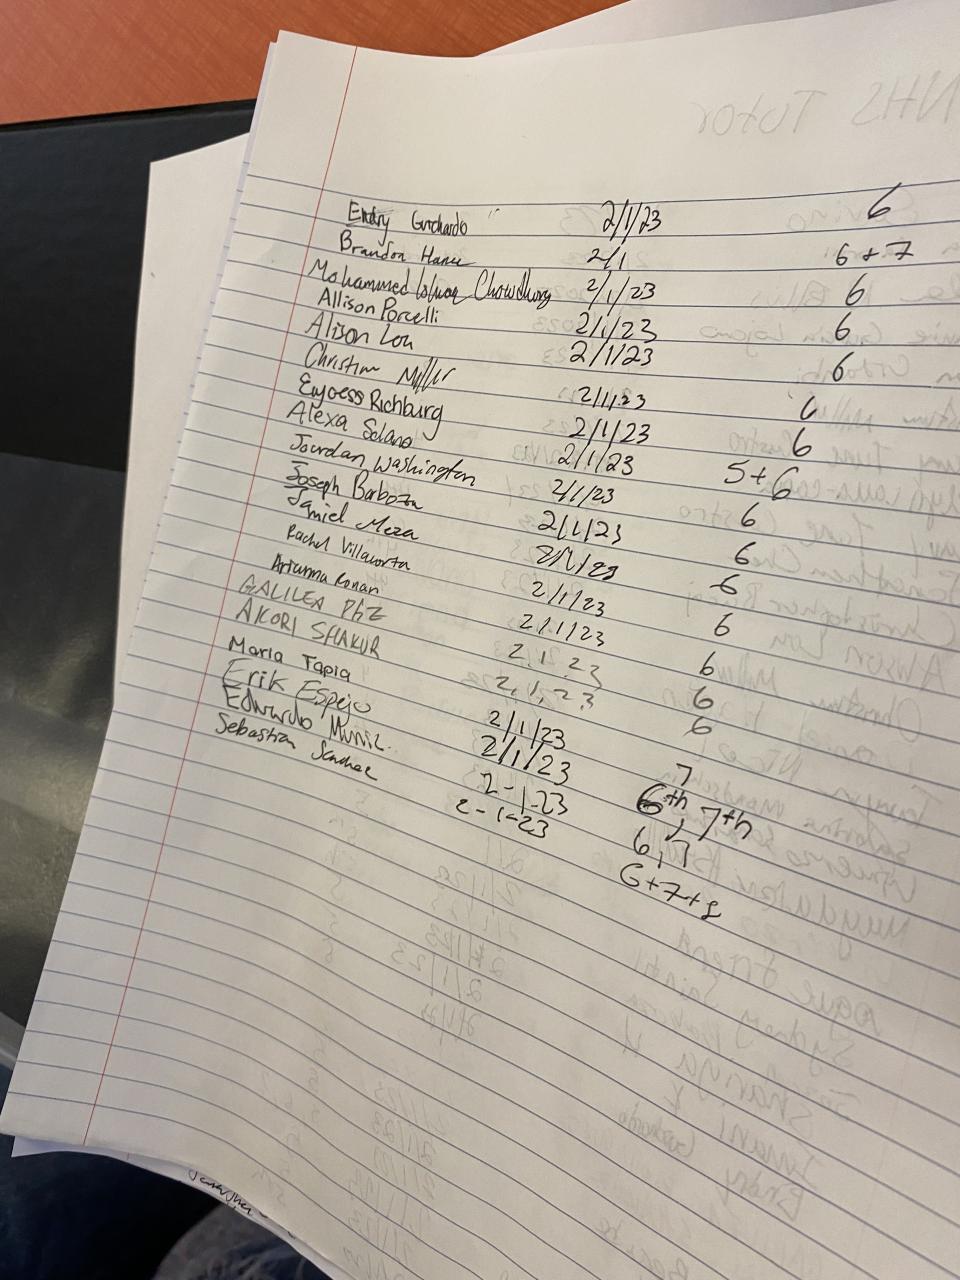 Endry Guchardo 2/1/23 6
Brandon 2/1 6 + 7
Mohammed Chowdhury 2/1/23 6
Allison Porcelli 2/1/23 6
Alison Lou 2/1/23 6
Christian Miller 2/1/23 6
Richburg 2/1/23 6
Alexa Solano 2/1/23 5 + 6
Jourdan Washington 2/1/23 6
Joseph Barboza 2/1/23 6
Jamiel Meza 2/1/23 6
Rachel Villacorta 2/1/23 6
Arianna Ronan 2/1/23 6
GALILEA PAZ 2.1.23 6
AKORI SHAKUR 2.1.23 6
Maria Tapia 2/1/23 7
Erik Espejo 2/1/23 6th, 7th
Eduardo Muniz. 2-1-23 6,7
Sebastian Sanchez 2-1-23 6+7+8